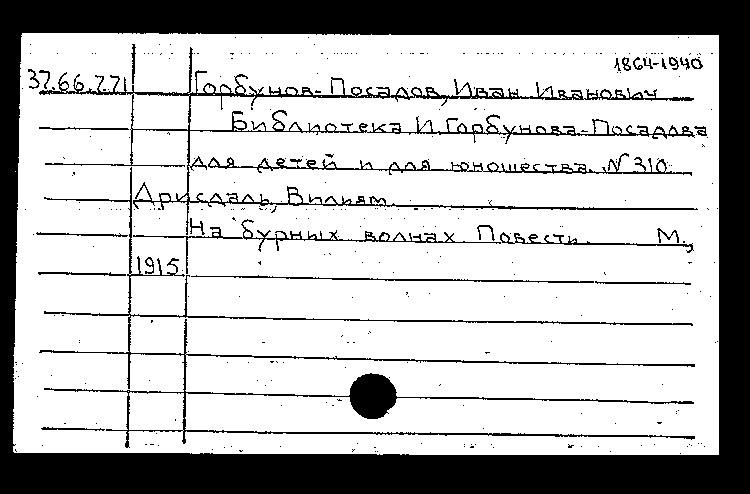 1864-1940
37.66.771 Горбунов-Посадов, Иван Иванович
Библиотека И. Горбунова-Посадова
для детей и для юношества. N 310.
Дрисдаль, Вилиям.
На бурных волнах Повести. М.,
1915.